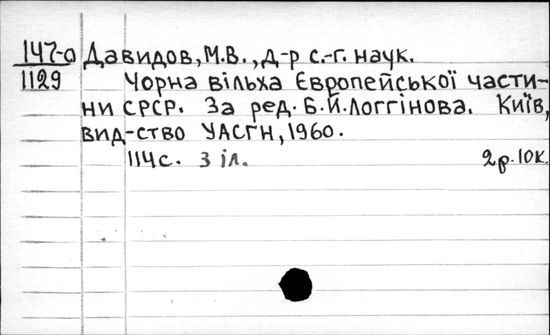 147-а Давидов, М.В., д-р с.-г. наук.
1129 Чорна вільха Європейської части-
ни СРСР. За ред. Б.Й.Логгінова. Київ,
вид-ство УАСГН, 1960.
114 с. з іл. 2р.10к.